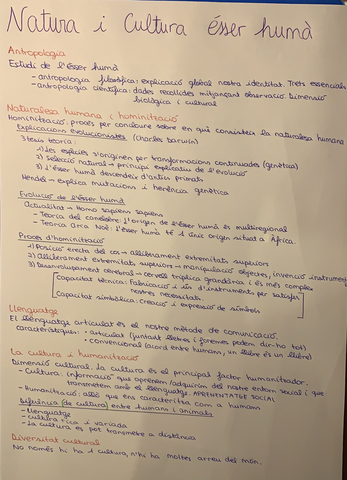 Natura i Cultura ésser humà
Antropologia
Estudi de l'ésser humà
- antropologia filosòfica: explicació global nostra identitat. Trets essencials
- antropologia científica: dades recollides mitjançant observació. Dimensió
biològica i cultural
Naturalesa humana i hominització
Hominització: procés per concloure sobre en què consisteix la naturalesa humana
Explicacions evolucionistes (Charles Darwin)
3 tesis teoria:
1) Les espècies s'originen per transformacions continuades (genètica)
2) Selecció natural → principi explicatiu de l'evolució
3) L'ésser humà descendeix d'antics primats
Mendel → explica mutacions i herència genètica
Evolució de l'ésser humà
Actualitat → Homo sapiens sapiens
- Teoria del canelobre: l'origen de l'ésser humà és multiregional
- Teoria Arca Noè: l'ésser humà té 1 únic origen situat a Àfrica.
Procés d'hominització
1) Posició erecta del cos → alliberament extremitats superiors
2) Alliberament extremitats superiors → manipulació objectes, invenció instruments
3) Desenvolupament cerebral → cervell triplica grandària i és més complex
Capacitat tècnica: Fabricació i ús d'instruments per satisfer
nostres necessitats.
Capacitat simbòlica: creació i expressió de símbols
Llenguatge
El llenguatge articulat és el nostre mètode de comunicació.
característiques: - articulat (juntant lletres i fonemes podem dir-ho tot)
- convencional (acord entre humans, un llibre és un llibre)
La cultura i humanització
Dimensió cultural. La cultura és el principal factor humanitzador.
- Cultura: informació que aprenem/adquirim del nostre entorn social i que
transmetem amb el llenguatge. APRENENTATGE SOCIAL
- Humanització: allò que ens caracteritza com a humans
Diferència (de cultura) entre humans i animals
- Llenguatge
- cultura rica i variada
- La cultura es pot transmetre a distància
Diversitat cultural
No només hi ha 1 cultura, n'hi ha moltes arreu del món.